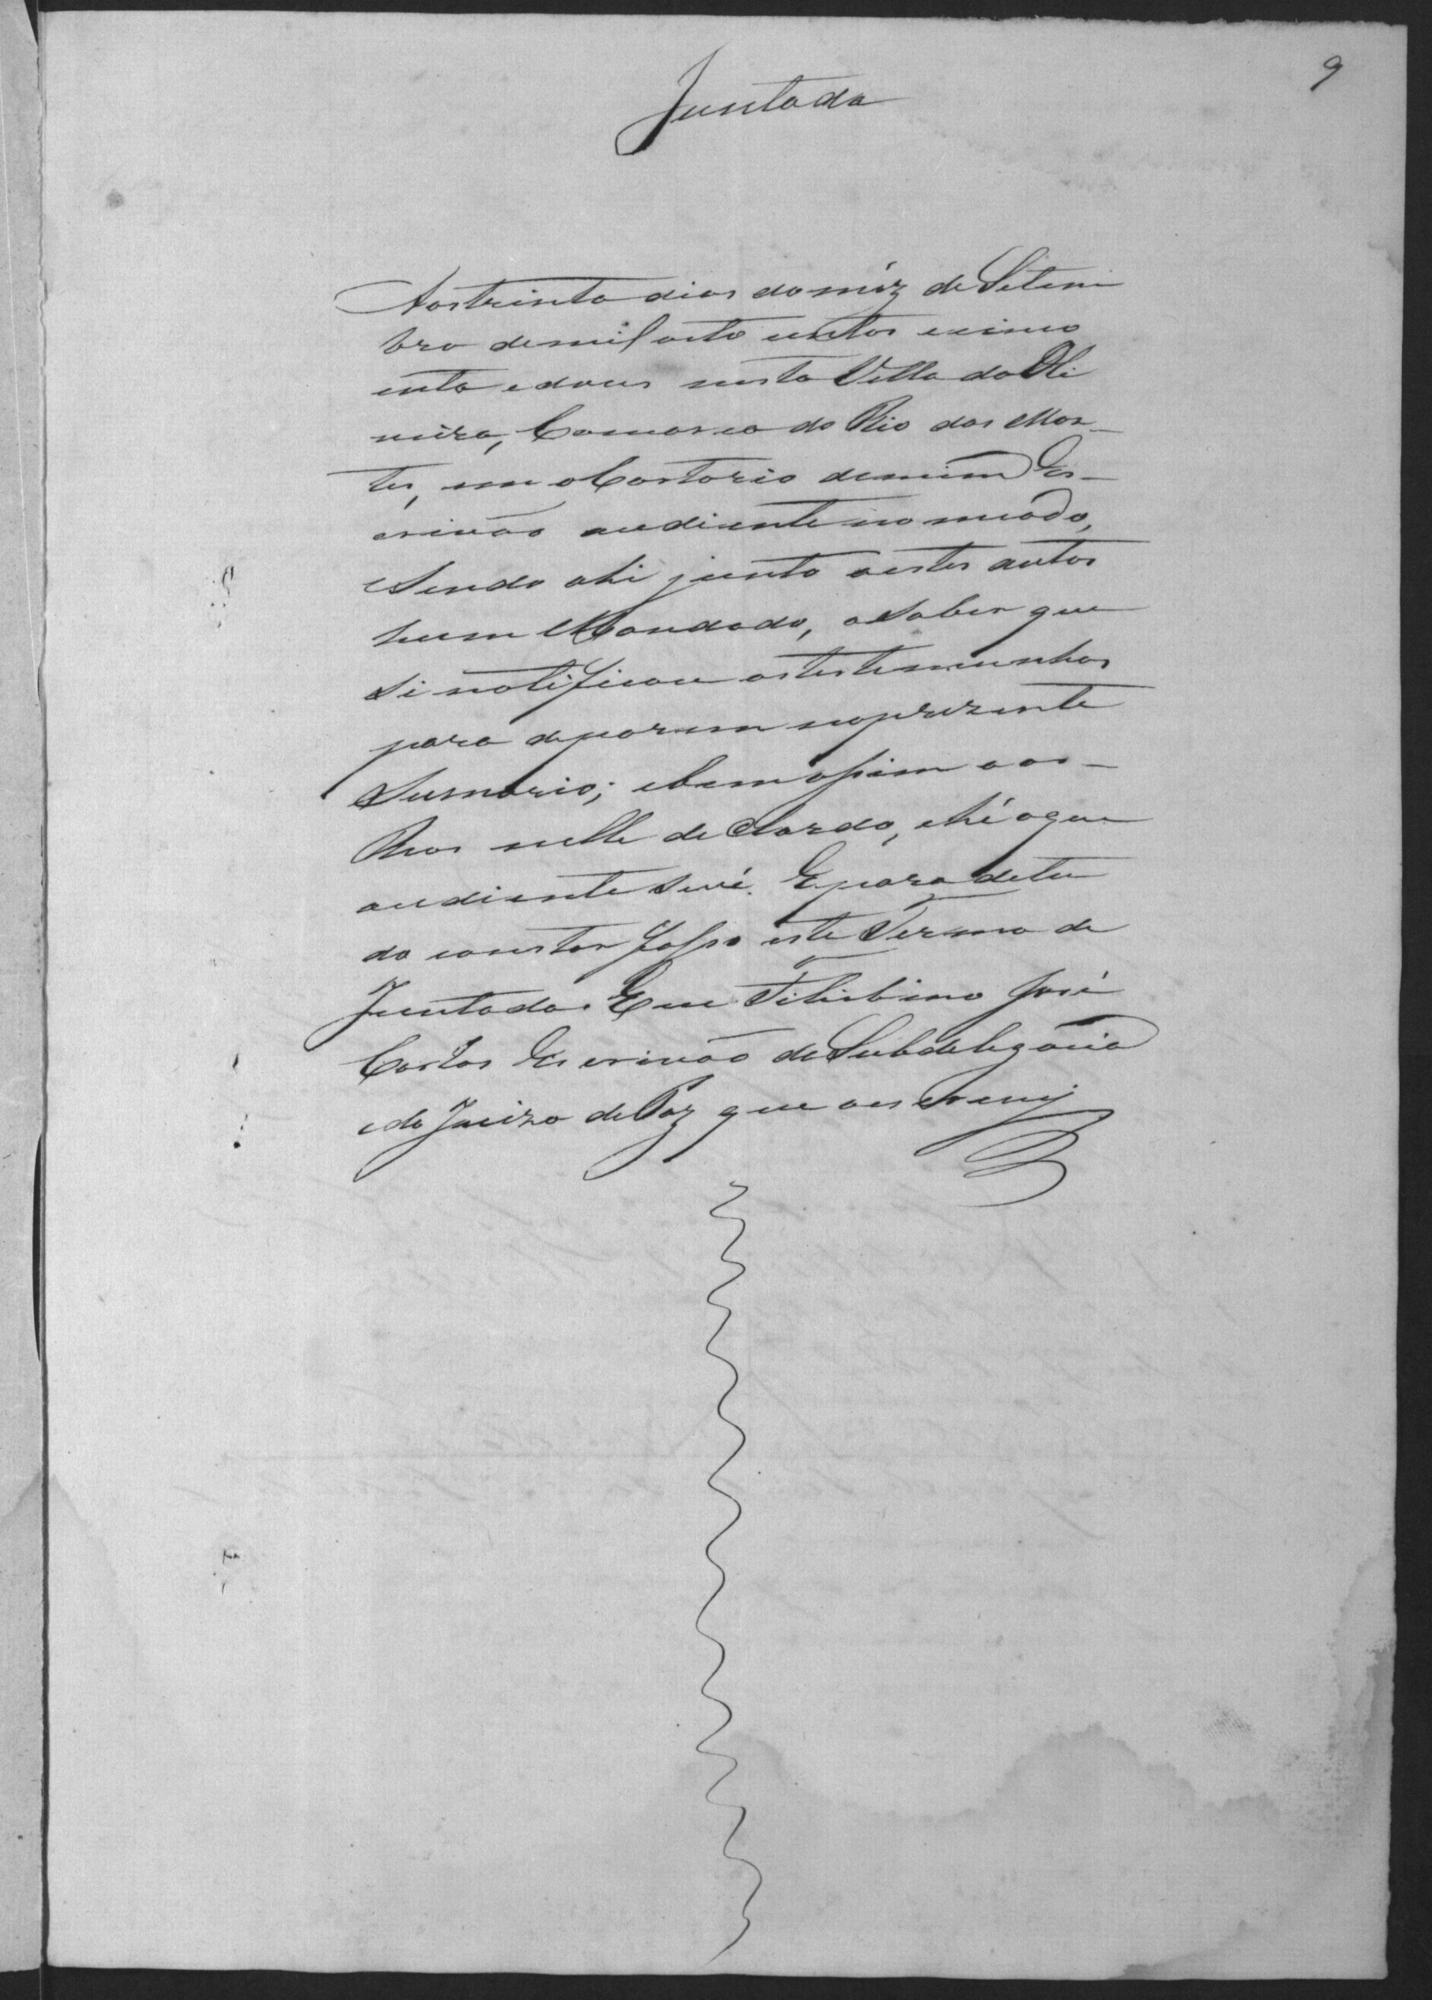 9
Juntada
Aos trinta dias do mêz de Setem
bro de mil oito centos e cinco
enta e dous nesta Villa da Oli
veira, Comarca do Rio das Mor-
tes, em o Cartorio de mim Es-
crivão audiente nomeado,
e sendo ahi junto a estes autos
hum Mandado, a saber que
si notificou as testemunhas
para deporem no prezente
Sumario; e bem assim a os-
Reos nelle declarado, e hé o que
audiente se vê. E para de tu
do constar fasso este Termo de
Juntada. Eu José
Carlos Escrivão da Subdelegacia
e do Juizo de Paz que o escrevy